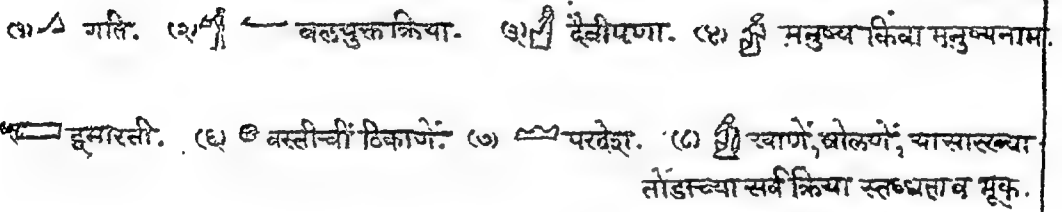 (१) गति. (२) बलयुक्त क्रिया. (३) दैवीपणा. (४) मनुष्य किंवा मनुष्यनाम.
(५) इमारती. (६) वस्तीचीं ठिकाणें. (७) परदेश. (८) खाणें, बोलणें, यासारख्या
तोंडाच्या सर्व क्रिया स्तब्धता व मूक.